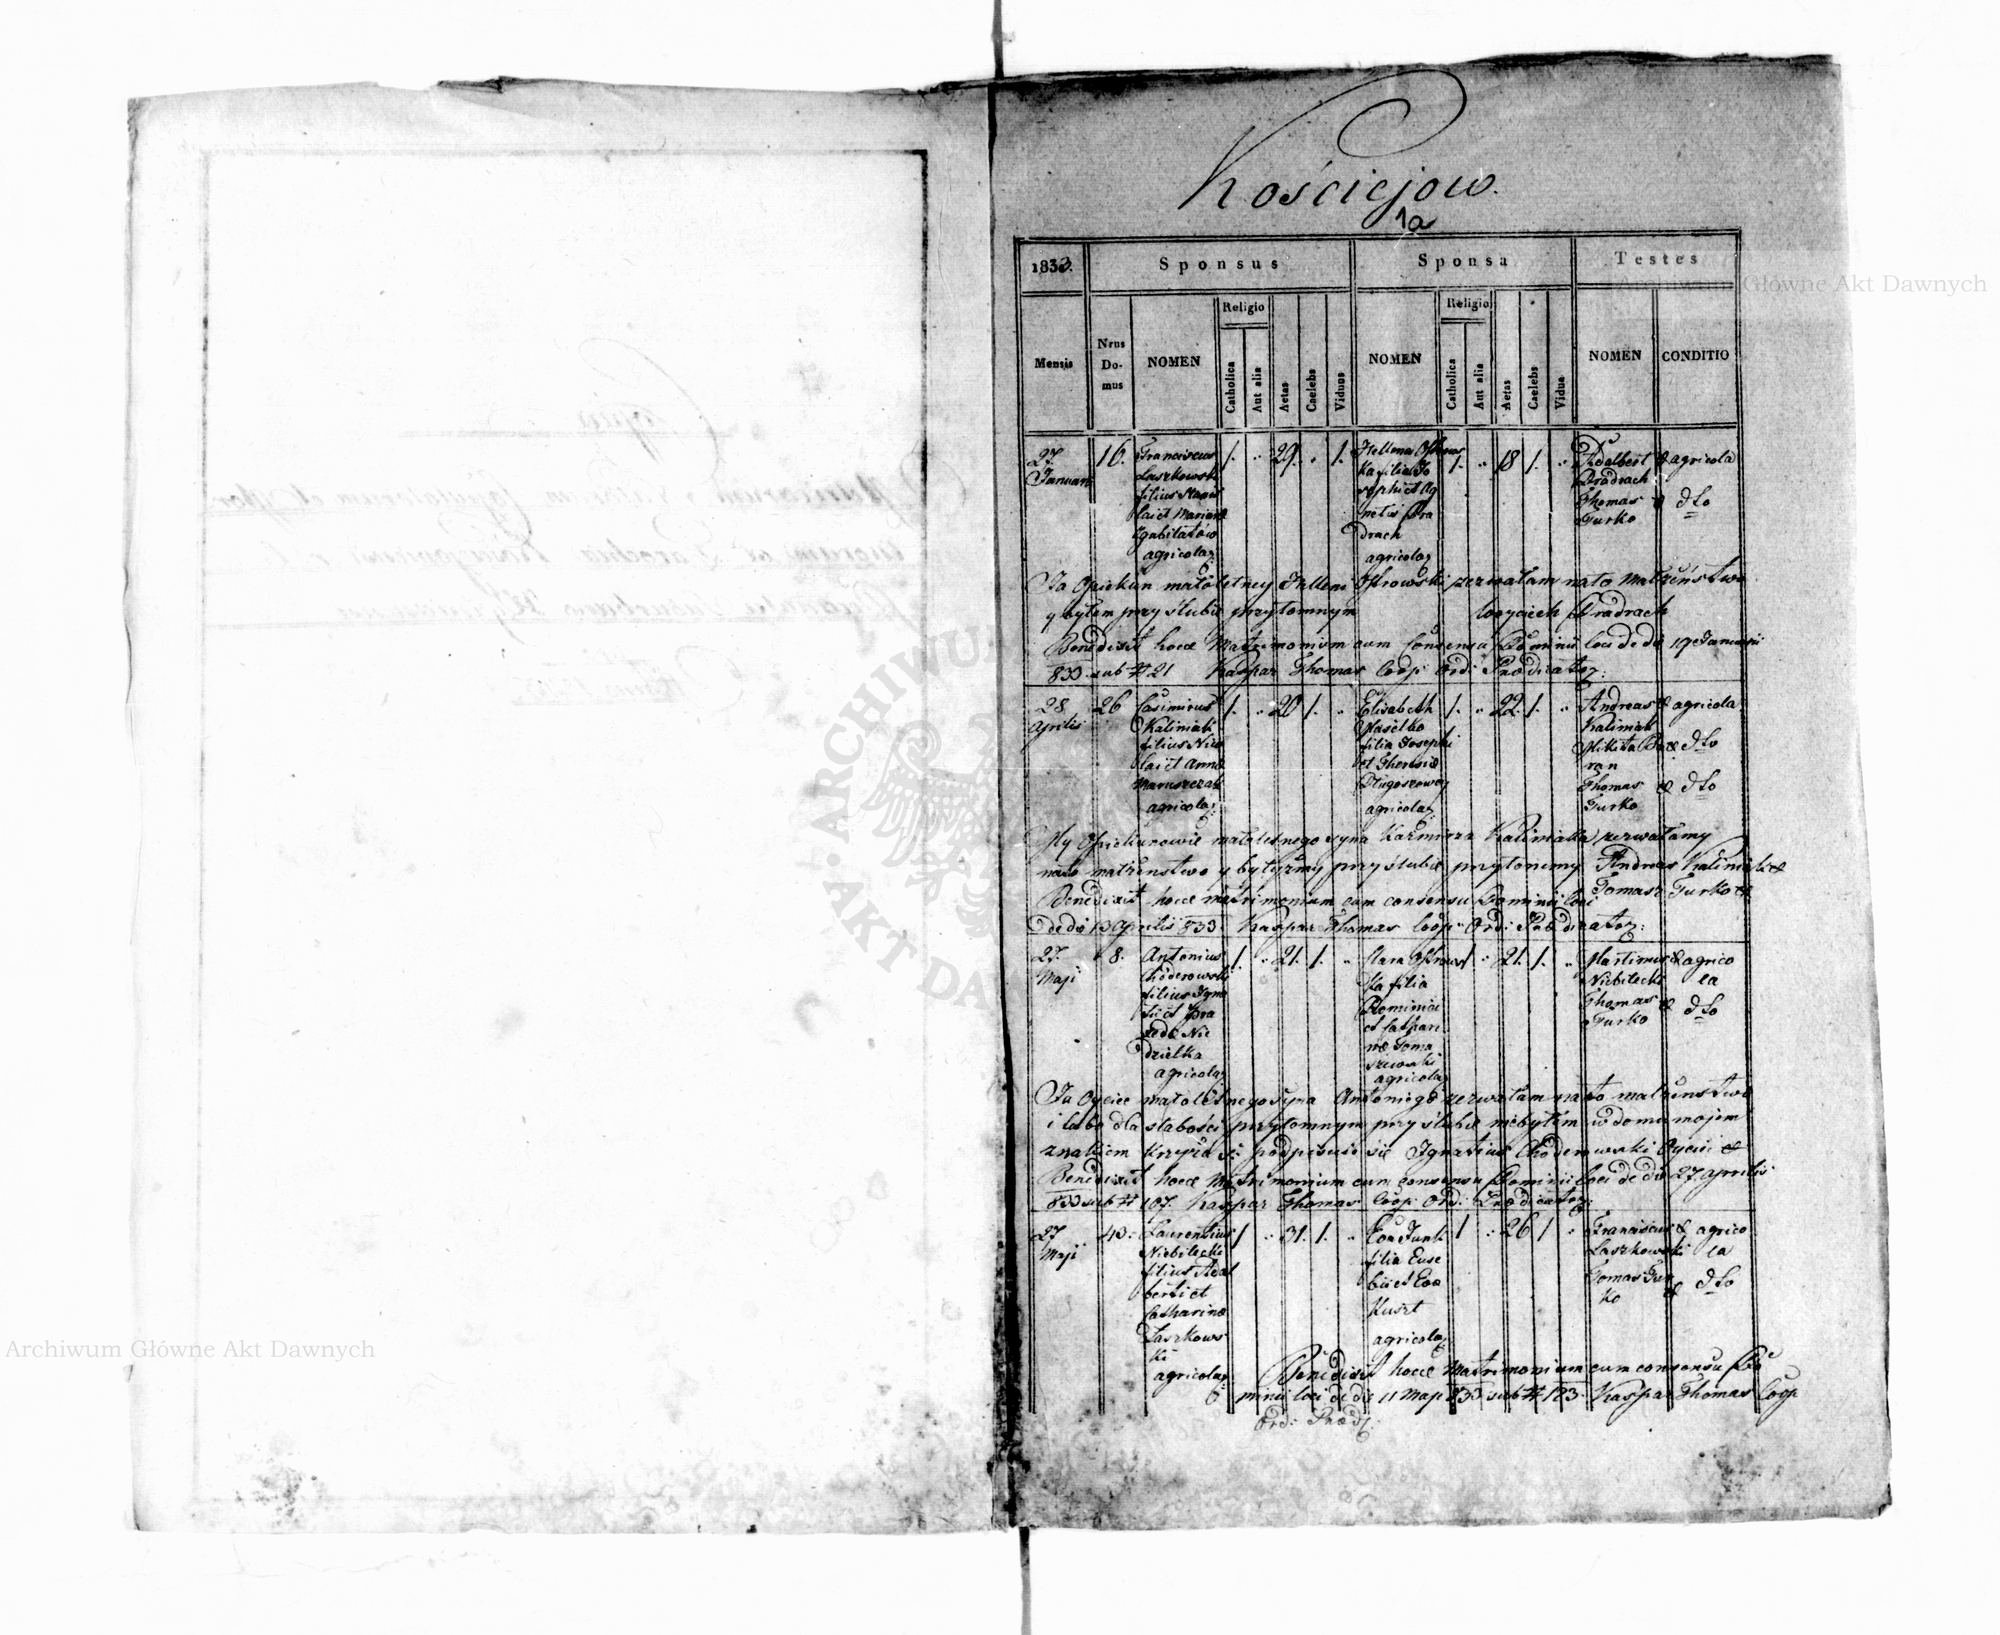 Kościejow.
1a
1833.
Sponsus
Sponsa
Testes
Mensis
Nrus Do- mus
NOMEN
Religio
Catholica
Aut alia
Aetas
Caelebs
Viduus
NOMEN
Religio
Catholica
Aut alia
Aetas
Caelebs
Vidua
NOMEN
CONDITIO
27
Januari
16.
Franciscus
Laszkowski
filius Stanis
lai et Mariannæ
agricola
1.
29.
1.
Hellena Ostrows
ka filia Jo
sephi et Ag
netis Dra
drach
agricola
1.
18
1.
Adalbert
Dradrach
Thomas
Turko
agricola
dto
Ja Opiekun małoletney Helleni Ostrowski zezwalam na to Małżeństwo
y byłem przy ślubie przytomnym Woyciech Dradrach
Benedixit hocce Matrimonium cum Consensu Dominii loci de dto 19 Januarii
833 sub # 21 Kaspar Thomas Coop: Ord: Prædicator:
28
Aprilis
26
Casimirus
Kaliniak
filius Nico
lai et Annæ
Maruszczak
agricola
1.
20
1.
Elisabeth
Masełko
filia Josephi
et Theresiæ
Długoszowey
agricola
1.
22.
1.
Andreas
Kaliniak
Mikita Ba
ran
Thomas
Turko
agricola
dto
dto
My Opiekunowie małoletnego syna Kaźmirza Kaliniaka zezwalamy
na to małżenstwo y byliżmy przy ślubie przytomnemy Andreas Kaliniak
Tomasz Turko
Benedixit hocce matrimonium cum consensu Dominii loci
de dto 13 Aprilis 833 Kaspar Thomas Coop: Ord: Prædicator:
27.
Maji
8.
Antonius
Chöderowski
filius Igna
tii et Pra
xedæ Nie
dzielka
agricola
1.
21.
1.
Clara Ostrows
ka filia
Dominici
et Cathari
næ Toma
szewski
agricola
1
21.
1.
Martinus
Niebilecki
Thomas
Turko
agrico
la
dto
Ja Oyciec małoletnego syna Antoniego zezwalam na to małżenstwo
i labo dla słabości przytomnym przy ślubie niebyłem w domu mojem
znakiem krzyża S: podpisuie sie Ignatius Chöderowski Oyciec
Benedixit hocce Matrimonium cum consensu Dominii loci de dto 27 aprilis
833 sub # 107. Kaspar Thomas Coop: Ord: Prædicator:
27
Maji
43.
Laurentius
Niebilecki
filius Adal
berti et
Catharinæ
Laszkows
ki
agricola
1
31.
1.
Eva Junk
filia Euse
bii et Eva
Kuszt
agricola
1
26
1
Franciscus
Laszkowski
Tomas Tur
ko
agrico
la
dto
Benedixit hocce Matrimonium cum consensu Do
minii loci de dto 11 Maji 833 sub # 123. Kaspar Thomas Coop
Ord: Præd:
Archiwum Główne Akt Dawnych
Archiwum Główne Akt Dawnych